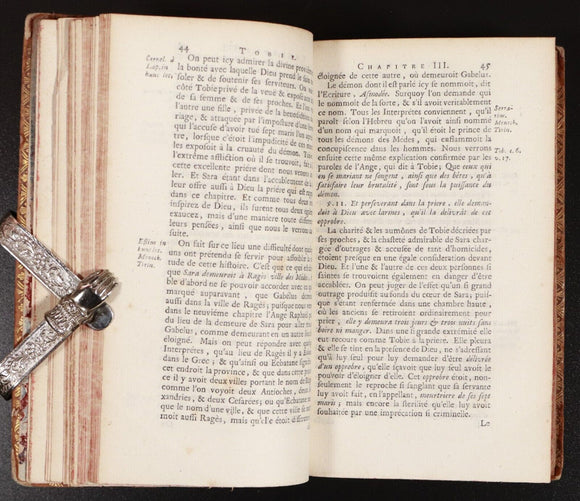 44 TOBIE.
Cornel. à
Lap. in
hunc loc.
On peut icy admirer la divine provi-
la bonté avec laquelle Dieu prend le soin
soler & de soutenir ses serviteurs. D'un
côté Tobie privé de la veuë & exposé
de sa femme & de ses proches. De l'au-
tre une fille, privée de la benediction
riage, & attaquée par l'imposture d'une
qui l'accuse d'avoir tué sept maris l'un
tre, lorsque c'étoit l'impudicité de ces
les exposoit à la cruauté du démon.
l'extrême affliction où il se trouvoit, fait
cette excellente priere dont nous venons
ler. Et Sara étant dans l'accablement de
leur offre aussi à Dieu la priere qui est
dans ce chapitre. Et comme tous deux
inspirez de Dieu, ils furent tous deux
exaucez, mais d'une maniere toute differente
leurs pensées, ainsi que nous le verrons
suite.
Estius in
hunc loc.
Menoch.
Tirin.
On fait sur ce lieu une difficulté dont
uns ont prétendu se servir pour affoiblir
té de cette histoire. C'est que ce qui est
que Sara demeuroit à Ragés ville des Medes,
ble d'abord ne se pouvoir accorder avec
marqué auparavant, que Gabelus
aussi dans la ville de Ragés; puisque
le neuviéme chapitre l'Ange Raphaël
du lieu de la demeure de Sara pour aller
Gabelus, comme demeurant en un autre
éloigné. Mais on peut répondre avec
Interprétes, qu'au lieu de Ragés il y a
dans le Grec; & qu'ainsi ou Ecbatane
cet endroit la province, & que dans
ce il y avoit deux villes portant le nom de
comme l'on voyoit deux Antioches, deux
xandries, & deux Cesarées; ou qu'Ecbatane
que le nom d'une ville, & que cette ville se
moit aussi Ragés, mais qu'elle étoit differente
CHAPITRE III. 45
éloignée de cette autre, où demeuroit Gabelus.
Le démon dont il est parlé icy se nommoit, dit
l'Ecriture, Asmodée. Surquoy l'on demande qui
le nommoit de la sorte, & s'il avoit veritablement
ce nom. Tous les Interprétes conviennent, qu'il
paroît selon l'Hebreu qu'on l'avoit ainsi nommé
d'un nom qui marquoit, qu'il étoit le prince de
tous les démons des Medes, qui enflammoit la
concupiscence dans les hommes. Nous verrons
ensuite cette même explication confirmée par les
paroles de l'Ange, qui dit à Tobie; Que ceux qui
en se mariant ne songent, ainsi que des bêtes, qu'à
satisfaire leur brutalité, sont sous la puissance du
démon.
Serra-
rius.
Menoch.
Tirin.
Tob. c. 6.
v. 17.
℣. 11. Et perseverant dans la priere, elle deman-
doit à Dieu avec larmes, qu'il la délivrât de cet
opprobre.
La charité & les aumônes de Tobie décriées par
ses proches, & la chasteté admirable de Sara char-
gée d'outrages & accusée de tant d'homicides,
étoient presque en une égale consideration devant
Dieu. Et l'une & l'autre de ces deux personnes si
saintes se trouvoient également en danger d'être
accablées. On peut juger de l'effet qu'un si grand
outrage produisit au fond du cœur de Sara; puis-
que s'étant renfermée dans une chambre haute,
où les anciens se retiroient ordinairement pour
prier, elle y demeura trois jours & trois nuits sans
boire ni manger. Dans une si grande extrémité elle
eut recours comme Tobie à la priere. Elle pleura
& elle se tint en la présence de Dieu, ne s'adressant
qu'à luy seul pour luy demander d'être délivrée
d'un opprobre, qu'elle sçavoit que luy seul avoit le
pouvoir d'éloigner d'elle. Cet opprobre étoit, non
seulement le reproche si sanglant que sa servante
luy avoit fait, en l'appellant, meurtriere de ses sept
maris; mais encore la sterilité qu'elle luy avoit
souhaitée par une imprécation si criminelle.
Le